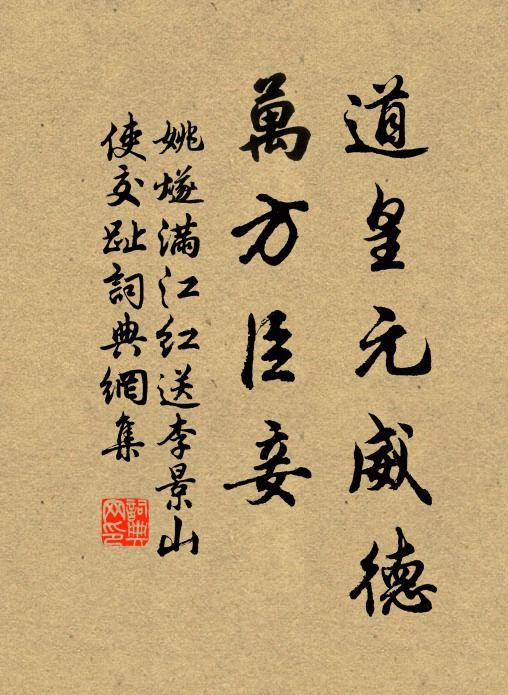 道皇元威德
萬方臣妾
姚燧滿江紅送李景山
使交趾詞典網集
詞典网印